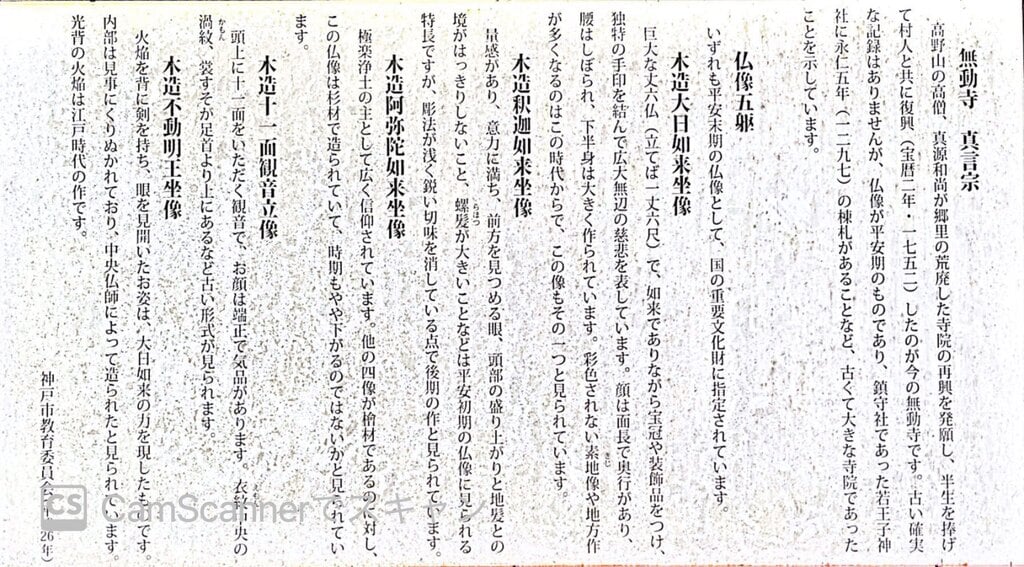 無動寺　真言宗
高野山の高僧、真源和尚が郷里の荒廃した寺院の再興を発願し、半生を捧げ
て村人と共に復興（宝暦二年・一七五二）したのが今の無動寺です。古い確実
な記録はありませんが、仏像が平安期のものであり、鎮守社であった若王子神
社に永仁五年（一二九七）の棟札があることなど、古くて大きな寺院であった
ことを示しています。
仏像五躯
いずれも平安末期の仏像として、国の重要文化財に指定されています。
木造大日如来坐像
巨大な丈六仏（立てば一丈六尺）で、如来でありながら宝冠や装飾品をつけ、
独特の手印を結んで広大無辺の慈悲を表しています。顔は面長で奥行があり、
腰はしぼられ、下半身は大きく作られています。彩色されない素地像や地方作
きじ
が多くなるのはこの時代からで、この像もその一つと見られています。
木造釈迦如来坐像
量感があり、意力に満ち、前方を見つめる眼、頭部の盛り上がりと地髪との
境がはっきりしないこと、螺髪が大きいことなどは平安初期の仏像に見られる
らほつ
特長ですが、彫法が浅く鋭い切味を消している点で後期の作と見られています。
木造阿弥陀如来坐像
極楽浄土の主として広く信仰されています。他の四像が檜材であるのに対し、
この仏像は杉材で造られていて、時期もやや下がるのではないかと見られてい
ます。
木造十一面観音立像
頭上に十一面をいただく観音で、お顔は端正で気品があります。衣紋中央の
えもん
渦紋、裳すそが足首より上にあるなど古い形式が見られます。
かもん
木造不動明王坐像
火焔を背に剣を持ち、眼を見開いたお姿は、大日如来の力を現したものです。
内部は見事にくりぬかれており、中央仏師によって造られたと見られています。
光背の火焔は江戸時代の作です。
神戸市教育委員会 26年）
CS CamScannerでスキャン